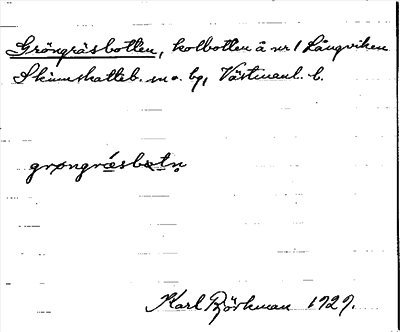 Gröngräsbotten, kolbotten å nr 1 Långviken
Skinnskatteb. sn o. bg, Västmanl. l.
grøngrǽsbɷtn̥
Karl Björkman 1929.